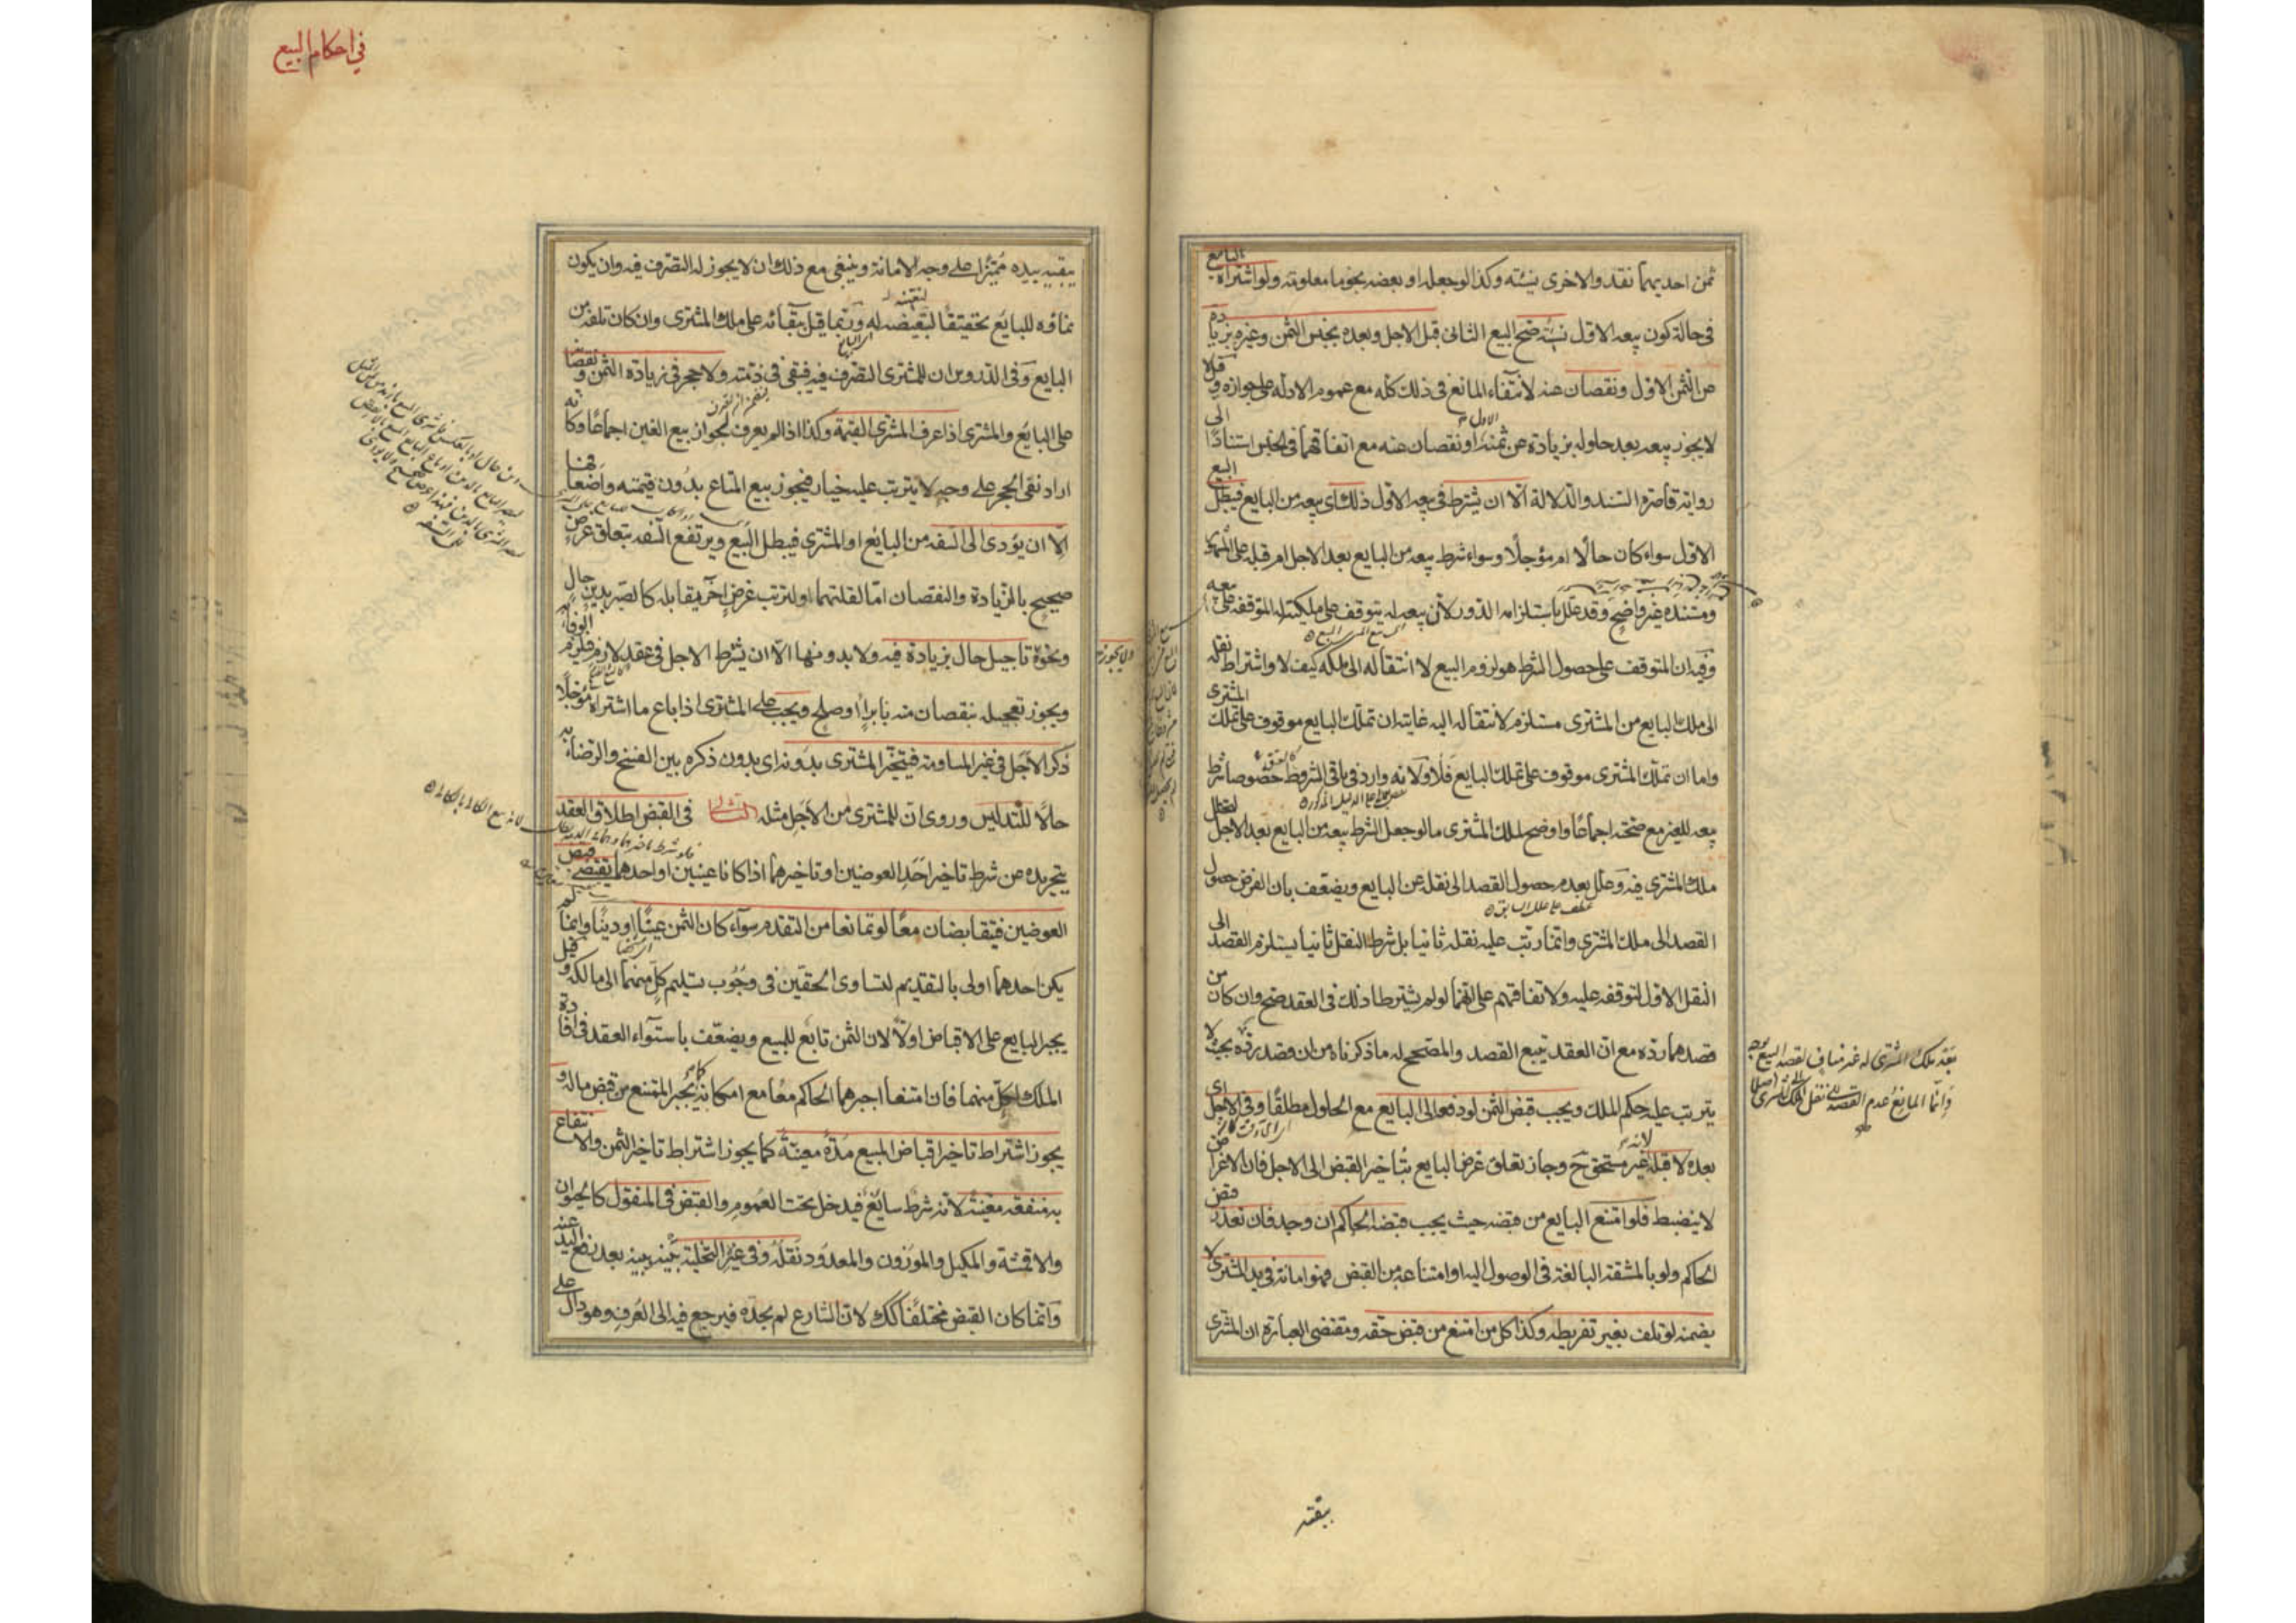 ثمن احديهما نقد والاخرى نسيئته وكذا لو جعله او بعضه نجوما معلومته ولو اشتراه البايع
فى حالة كون بيعه الاول نسيئة صح البيع الثانى قبل الاجل وبعده بجنس الثمن وغيره بزيادة
من الثمن الاول ونقصان عنه لانتفاء المانع فى ذلك كله مع عموم الادله على جوازه وقيل لا
لا يجوز بيعه بعد حلوله بزيادة عن ثمنه الاول او نقصان عنه مع اتفاقهما فى الجنس استنادا الى
رواية قاصرة السند والدلالة الا ان يشترط فى بيعه الاول ذلك اى بيعه من البايع فيبطل البيع
الاول سواء كان حالا ام مؤجلا وسواء شرط بيعه من البايع بعد الاجل ام قبله على المشهور
ومستنده غير واضح وقد علل باستلزامه الدور لان بيعه له يتوقف على ملكيته له المتوقفه على بيعه
وفيه ان المتوقف على حصول الشرط هو لزوم البيع لا انتقاله الى ملكه كيف لا واشتراط نقله
الى ملك البايع من المشترى مستلزم لانتقاله اليه غايته ان تملك البايع موقوف على تملك المشترى
واما ان تملك المشترى موقوف على تملك البايع فلا ولانه وارد فى باقى الشروط خصوصا شرط
بيعه للغير مع صحته اجماعا واوضح لملك المشترى ما لو جعل الشرط بيعه من البايع بعد الاجل لتخلل
ملك المشترى فيه وعلل بعدم حصول القصد الى نقله عن البايع ويضعف بان الفرض حصول
القصد الى ملك المشترى وانما رتب عليه نقله ثانيا بل شرط النقل ثانيا يستلزم القصد الى
النقل الاول لتوقفه عليه ولاتفاقهم على انهما لو لم يشترطا ذلك فى العقد صح وان كان من
قصدهما رده مع ان العقد يتبع القصد والمصحح له ما ذكرناه من ان قصد رده بحيث لا
يترتب عليه حكم الملك ويجب قبض الثمن لو دفعه الى البايع مع الحلول مطلقا وفى الاجل اى
بعده لا قبله لانه غير مستحق ح وجاز تعلق غرض البايع بتاخير القبض الى الاجل فان الاغراض
لا ينضبط فلو امتنع البايع من قبضه حيث يجب قبضه الحاكم ان وجد فان تعذر قبض
الحاكم ولو بالمشقة البالغة فى الوصول اليه او امتناعه من القبض فهو امانة فى يد المشترى لا
يضمنه لو تلف بغير تفريطه وكذا كل من امتنع من قبض حقه ومقتضى العبارة ان المشترى
بعد ملك المشترى له غير مناف لقصد البيع بوجه
وانما المانع عدم القصد الى نقل الملك الى المشترى اصلا
يبقيه
فى احكام البيع
يبقيه بيده مميزا على وجه الامانة وينبغى مع ذلك ان لا يجوز له التصرف فيه وان يكون
نماؤه للبايع تحقيقا لتعيينه له وربما قيل ببقائه على ملك المشترى وان كان تلفه من
البايع وفى الدروس ان للمشترى التصرف فيه فيبقى فى ذمته ولا حجر فى زيادة الثمن ونقصانه
على البايع والمشترى اذا عرف المشترى القيمة وكذا اذا لم يعرف لجواز بيع الغبن اجماعا وكانه
اراد نفى الحجر على وجه لا يترتب عليه خيار فيجوز بيع المتاع بدون قيمته واضعافها
الا ان يؤدى الى السفه من البايع او المشترى فيبطل البيع ويرتفع السفه بتعلق غرض
صحيح بالزيادة والنقصان اما لقلتهما او لترتب غرض اخر يقابله كالصبر بدين حال
ونحوه
ولا يجوز
تاجيل حال بزيادة فيه ولا بدونها الا ان يشترط الاجل فى عقد لازم فيلزم الوفاء به
ويجوز تعجيله بنقصان منه بابراء او صلح ويجب على المشترى اذا باع ما اشتراه مؤجلا
ذكر الاجل فى غير المساومة فيتخير المشترى بدونه اى بدون ذكره بين الفسخ والرضاء به
حالا للتدليس وروى ان للمشترى من الاجل مثله الثالث فى القبض اطلاق العقد
بتجريده عن شرط تاخير احد العوضين او تاخيرهما اذا كانا عينين او احدهما يقتضى قبض
العوضين فيتقابضان معا لو تمانعا من التقدم سواء كان الثمن عينا او دينا وانما لم
يكن احدهما اولى بالتقديم لتساوى الحقين فى وجوب تسليم كل منهما الى مالكه وقيل
يجبر البايع على الاقباض اولا لان الثمن تابع للمبيع ويضعف باستواء العقد فى افادة
الملك لكل منهما فان امتنعا اجبرهما الحاكم معا مع امكانه كما يجبر الممتنع من قبض ماله و
يجوز اشتراط تاخير اقباض المبيع مدة معينة كما يجوز اشتراط تاخير الثمن والانتفاع
به منفعة معينة لانه شرط سايغ فيدخل تحت العموم والقبض فى المنقول كالحيوان
والاقمشة والمكيل والموزون والمعدود نقله وفى غيره التخلية بينه وبينه بعد رفع اليد عنه
وانما كان القبض مختلفا كك لان الشارع لم يحده فيرجع فيه الى العرف وهو دال على
لانه بيع الكالى بالكالى